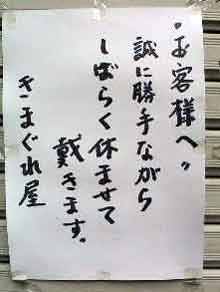 "お客様へ"
誠に勝手ながら
しばらく休ませて
戴きます。
きまぐれ屋